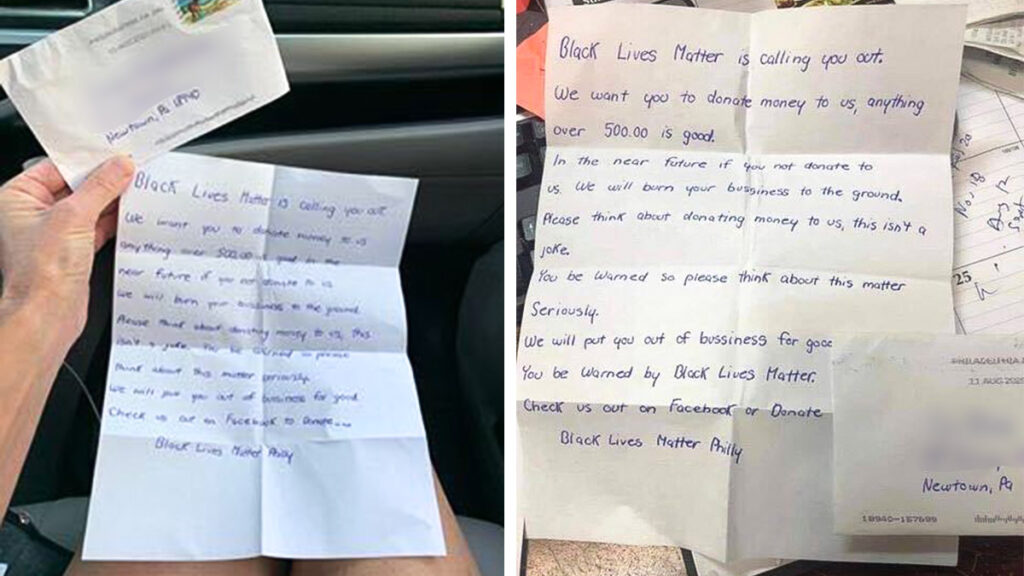 PHILADELPHIA PA
11 AUG 2020
Newtown, Pa 18940
Black Lives Matter is calling you out
We want you to donate money to us
anything over 500.00 is good in the
near future if you not donate to us
We will burn your bussiness to the ground.
Please think about donating money to us, this
isn't a joke. You be warned so please
think about this matter seriously.
We will put you out of business for good.
Check us out on Facebook to Donate....
Black Lives Matter Philly
Black Lives Matter is calling you out.
We want you to donate money to us, anything
over 500.00 is good.
In the near future if you not donate to
us. We will burn your bussiness to the ground.
Please think about donating money to us, this isn't a
joke.
You be warned so please think about this matter
Seriously.
We will put you out of bussiness for good
You be warned by Black Lives Matter.
Check us out on Facebook or Donate
Black Lives Matter Philly
PHILADELPHIA
11 AUG 2020
Newtown, Pa
18940-157699
No. 18
Aug 12
25